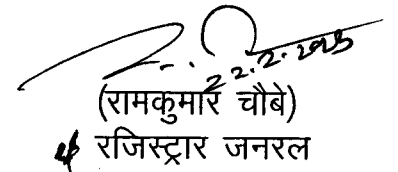 22.2.2023
(रामकुमार चौबे)
रजिस्ट्रार जनरल